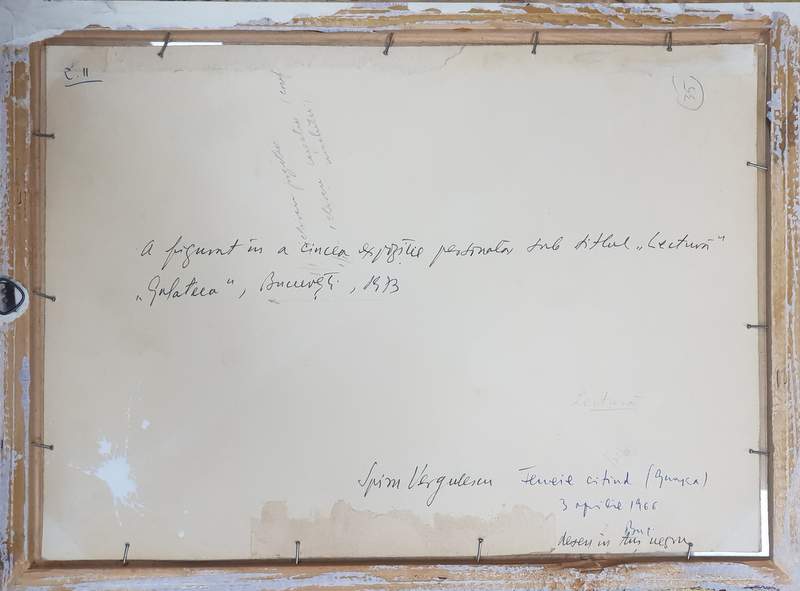 C. II
35
A figurat în a cincea expoziție personală sub titlul „Lectură”
„Galateea”, București, 1973
Lectură
Spiru Vergulescu Femeie citind (Guașă)
3 aprilie 1966
Buc.
„desen în tuș negru